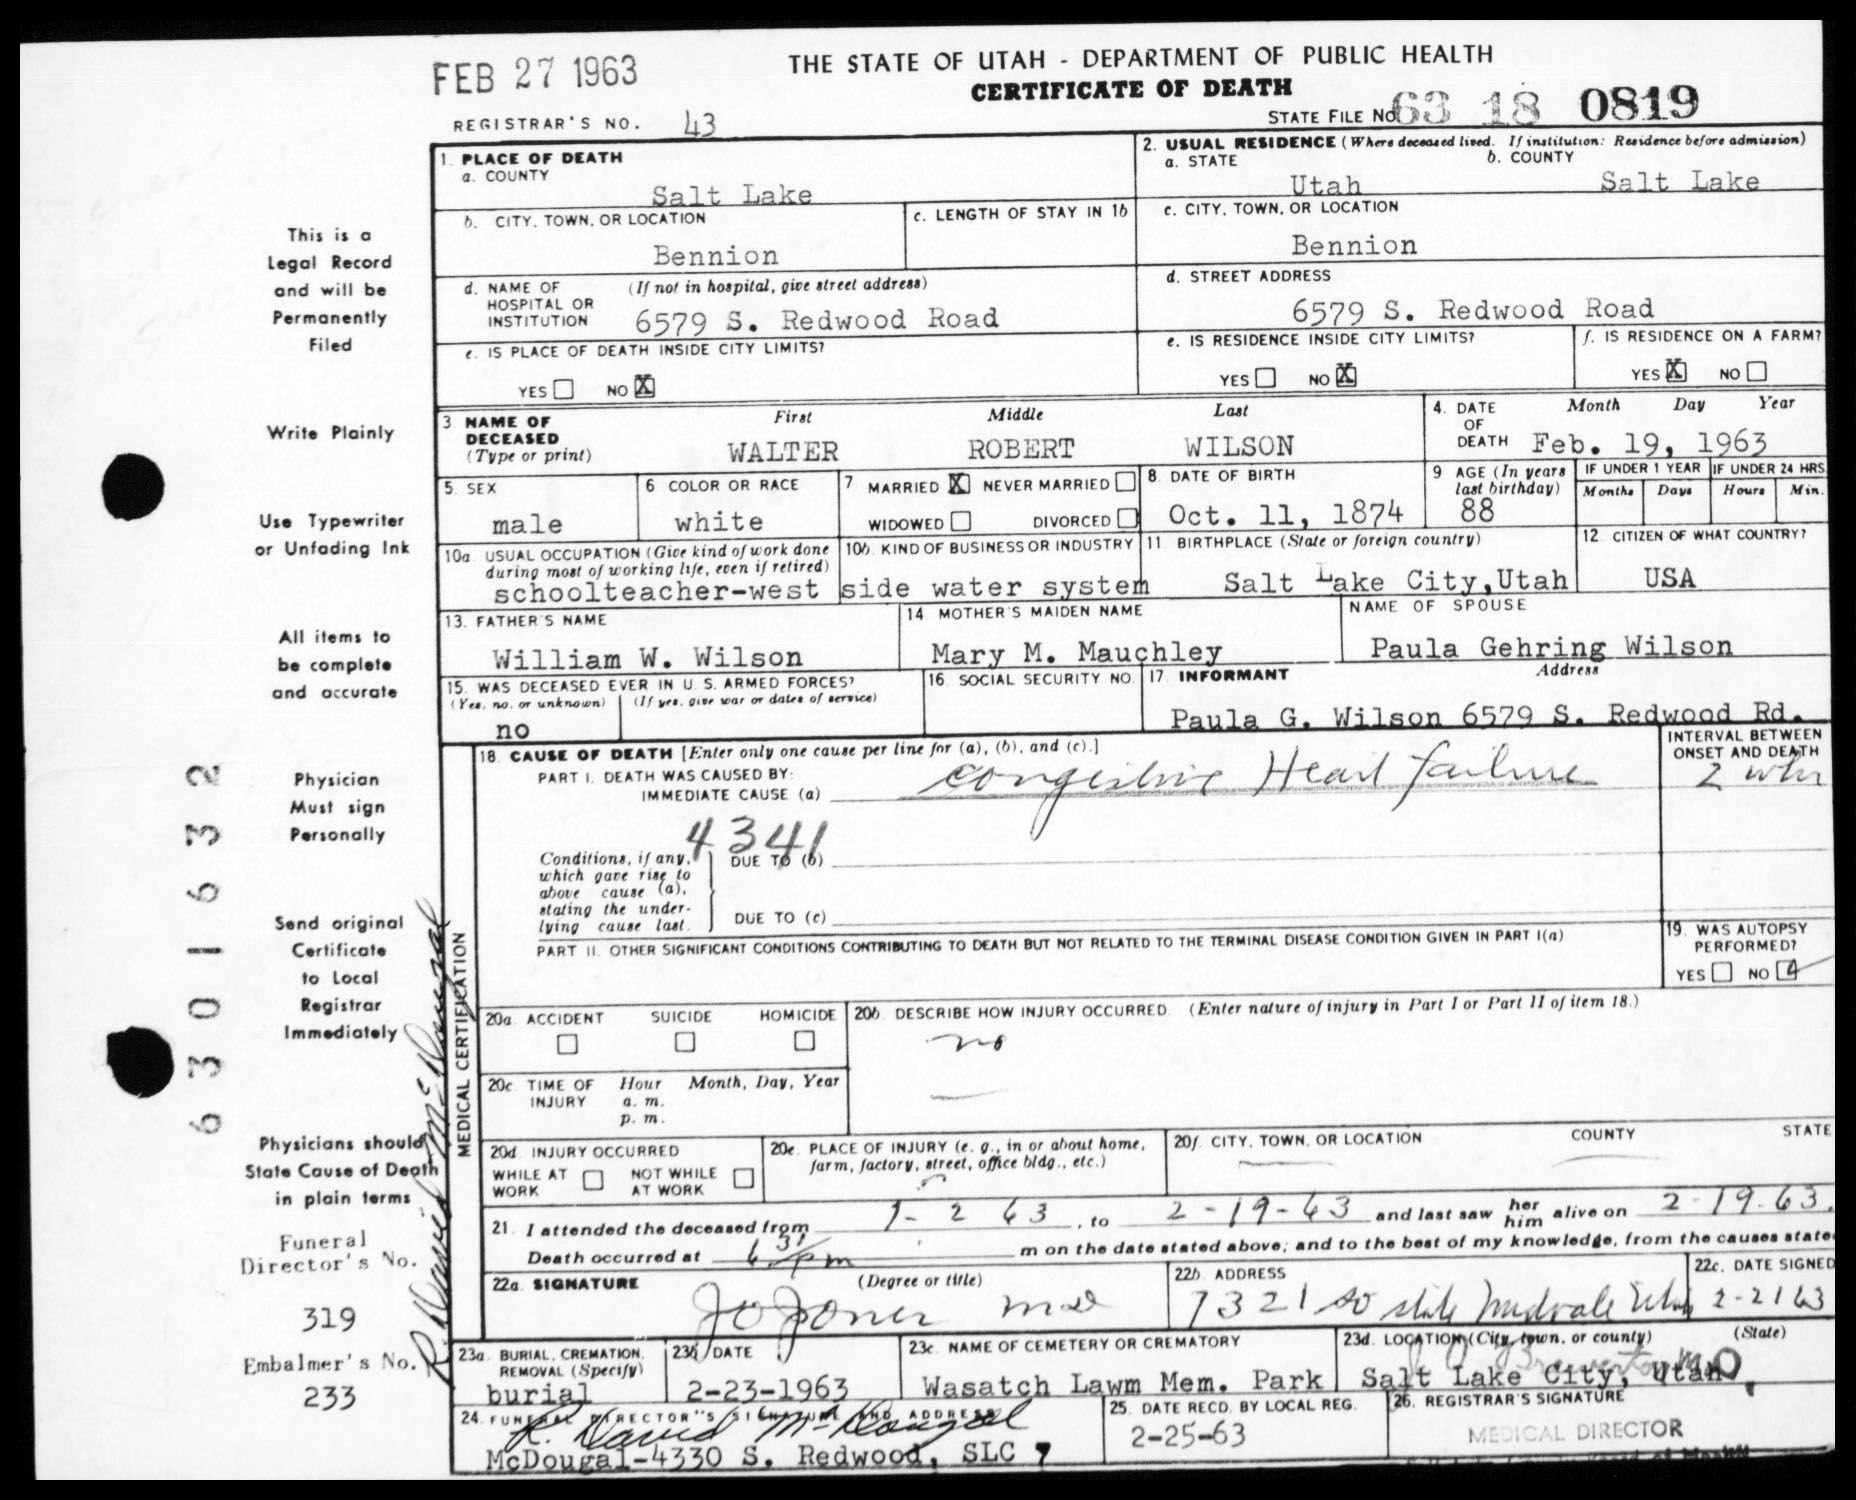 FEB 27 1963
THE STATE OF UTAH - DEPARTMENT OF PUBLIC HEALTH
CERTIFICATE OF DEATH
REGISTRAR'S NO. 43
STATE FILE NO. 63 18 0819
1. PLACE OF DEATH
a. COUNTY
Salt Lake
2. USUAL RESIDENCE (Where deceased lived. If institution: Residence before admission)
a. STATE b. COUNTY
Utah Salt Lake
b. CITY, TOWN, OR LOCATION
Bennion
c. LENGTH OF STAY IN 1b
c. CITY, TOWN, OR LOCATION
Bennion
d. NAME OF HOSPITAL OR INSTITUTION (If not in hospital, give street address)
6579 S. Redwood Road
d. STREET ADDRESS
6579 S. Redwood Road
e. IS PLACE OF DEATH INSIDE CITY LIMITS?
YES NO X
e. IS RESIDENCE INSIDE CITY LIMITS?
YES NO X
f. IS RESIDENCE ON A FARM?
YES X NO
3 NAME OF DECEASED (Type or print)
First Middle Last
WALTER ROBERT WILSON
4. DATE OF DEATH
Month Day Year
Feb. 19, 1963
5. SEX
male
6 COLOR OR RACE
white
7 MARRIED X NEVER MARRIED
WIDOWED DIVORCED
8. DATE OF BIRTH
Oct. 11, 1874
9 AGE (In years last birthday)
88
IF UNDER 1 YEAR
Months Days
IF UNDER 24 HRS.
Hours Min.
10a. USUAL OCCUPATION (Give kind of work done during most of working life, even if retired)
10b. KIND OF BUSINESS OR INDUSTRY
schoolteacher-west side water system
11. BIRTHPLACE (State or foreign country)
Salt Lake City,Utah
12. CITIZEN OF WHAT COUNTRY?
USA
13. FATHER'S NAME
William W. Wilson
14. MOTHER'S MAIDEN NAME
Mary M. Mauchley
NAME OF SPOUSE
Paula Gehring Wilson
15. WAS DECEASED EVER IN U. S. ARMED FORCES?
(Yes, no, or unknown) (If yes, give war or dates of service)
no
16. SOCIAL SECURITY NO.
17. INFORMANT Address
Paula G. Wilson 6579 S. Redwood Rd.
MEDICAL CERTIFICATION
18. CAUSE OF DEATH [Enter only one cause per line for (a), (b), and (c).]
INTERVAL BETWEEN ONSET AND DEATH
PART I. DEATH WAS CAUSED BY:
IMMEDIATE CAUSE (a) congestive Heart failure
2
4341
Conditions, if any, which gave rise to above cause (a), stating the underlying cause last.
DUE TO (b)
DUE TO (c)
PART II. OTHER SIGNIFICANT CONDITIONS CONTRIBUTING TO DEATH BUT NOT RELATED TO THE TERMINAL DISEASE CONDITION GIVEN IN PART I(a)
19. WAS AUTOPSY PERFORMED?
YES NO
20a. ACCIDENT SUICIDE HOMICIDE
20b. DESCRIBE HOW INJURY OCCURRED. (Enter nature of injury in Part I or Part II of item 18.)
no
20c. TIME OF INJURY Hour Month, Day, Year
a. m.
p. m.
20d. INJURY OCCURRED
WHILE AT WORK NOT WHILE AT WORK
20e. PLACE OF INJURY (e. g., in or about home, farm, factory, street, office bldg., etc.)
20f. CITY, TOWN, OR LOCATION COUNTY STATE
21. I attended the deceased from 1- 2 63, to 2-19-63 and last saw her him alive on 2-19-63.
Death occurred at 6 31 pm m on the date stated above; and to the best of my knowledge, from the causes state
22a. SIGNATURE (Degree or title)
22b. ADDRESS
7321 So State Midvale Utah
22c. DATE SIGNED
2-21 63
23a. BURIAL, CREMATION, REMOVAL (Specify)
burial
23b. DATE
2-23-1963
23c. NAME OF CEMETERY OR CREMATORY
Wasatch Lawm Mem. Park
23d. LOCATION (City, town, or county) (State)
Salt Lake City, Utah
24. FUNERAL DIRECTOR'S SIGNATURE AND ADDRESS
R. David McDougal
McDougal-4330 S. Redwood, SLC 7
25. DATE RECD. BY LOCAL REG.
2-25-63
26. REGISTRAR'S SIGNATURE
MEDICAL DIRECTOR
This is a
Legal Record
and will be
Permanently
Filed
Write Plainly
Use Typewriter
or Unfading Ink
All items to
be complete
and accurate
Physician
Must sign
Personally
Send original
Certificate
to Local
Registrar
Immediately
Physicians should
State Cause of Death
in plain terms
Funeral
Director's No.
319
Embalmer's No.
233
R. David McDougal
63 01632